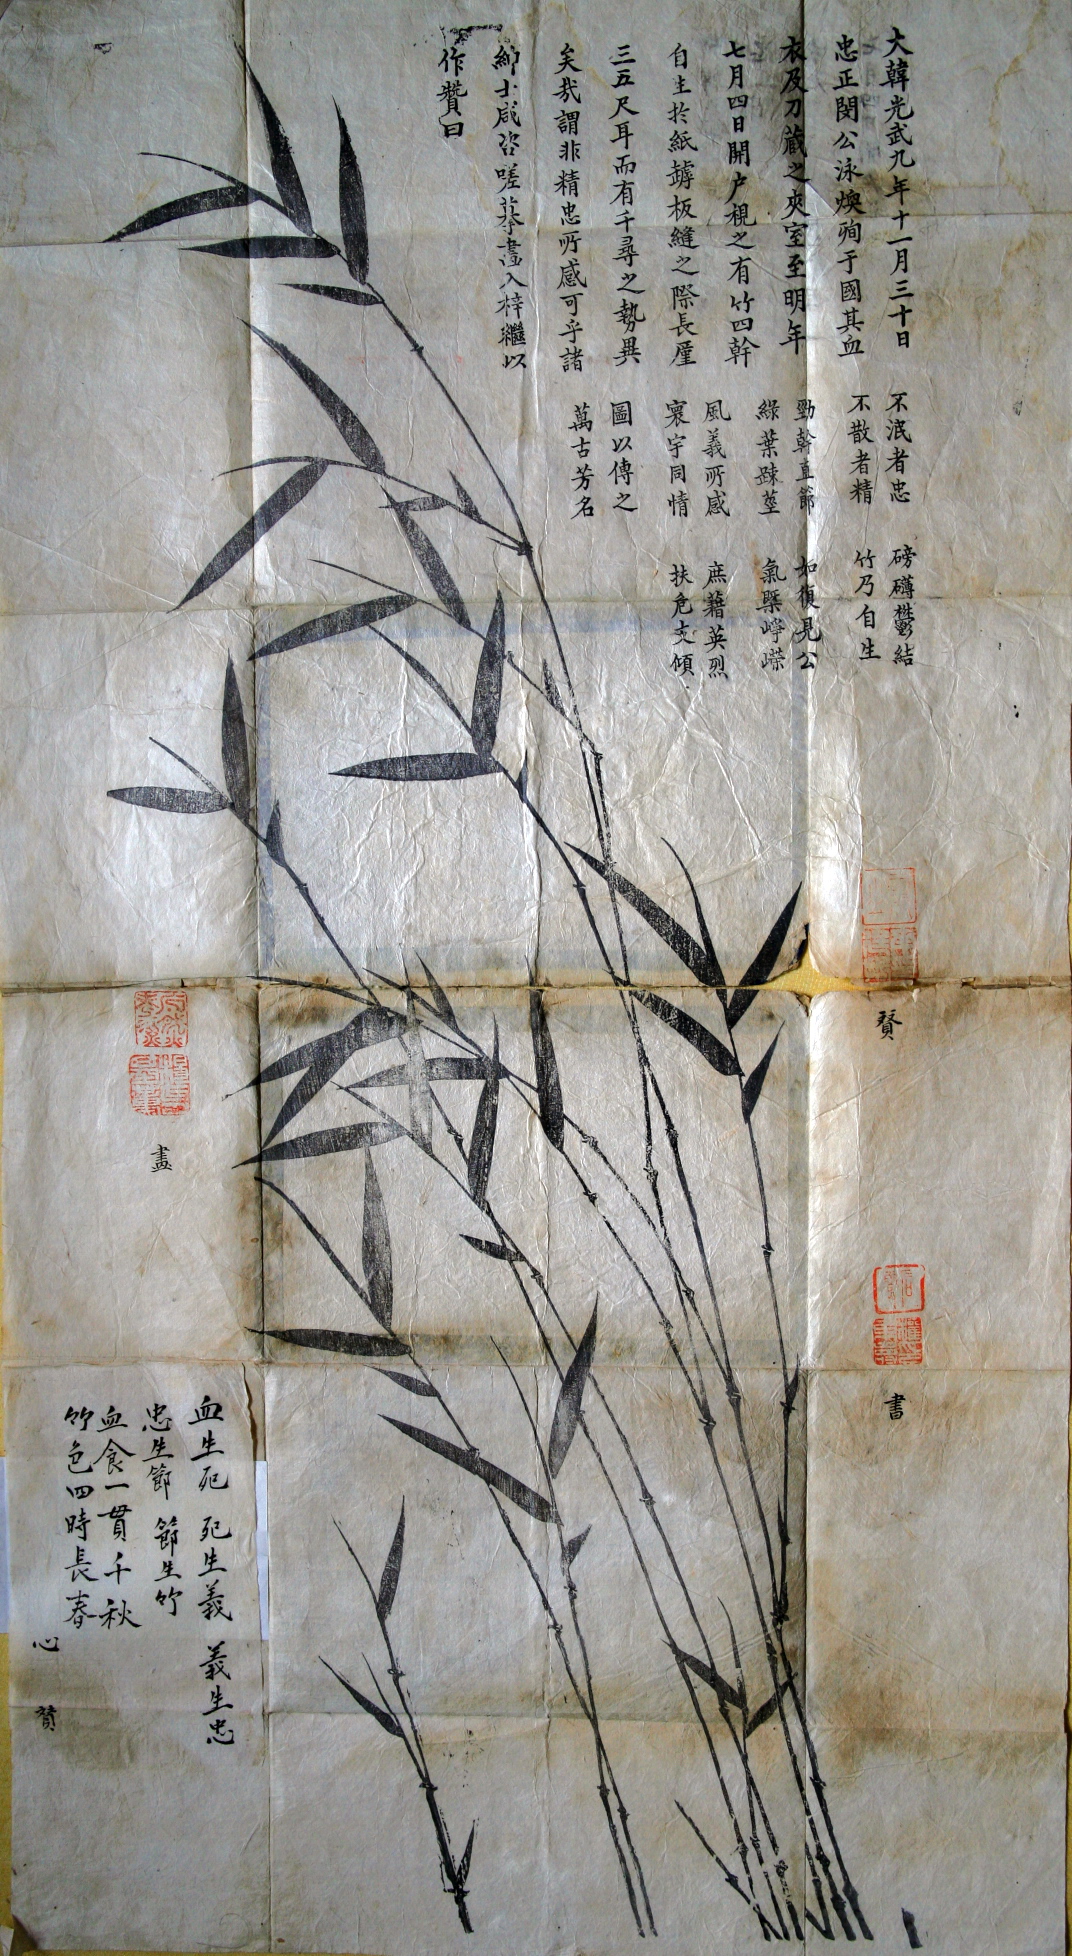 大韓光武九年十一月三十日
忠正閔公泳煥殉于國其血
衣及刀藏之夾室至明年
七月四日開户視之有竹四幹
自生於紙罅板縫之際長厪
三五尺耳而有千尋之勢異
矣哉謂非精忠所感可乎諸
紳士咸咨嗟摹畵入梓繼以
作贊曰
不泯者忠 磅礴鬱結
不散者精 竹乃自生
勁幹直節 如復見公
綠葉踈莖 氣槩崢嶸
風義所感 庶藉英烈
寰宇同情 扶危支傾
圖以傳之
萬古芳名
贊
書
畵
血生死 死生義 義生忠
忠生節 節生竹
血食一貫千秋
竹色四時長春
心 贊